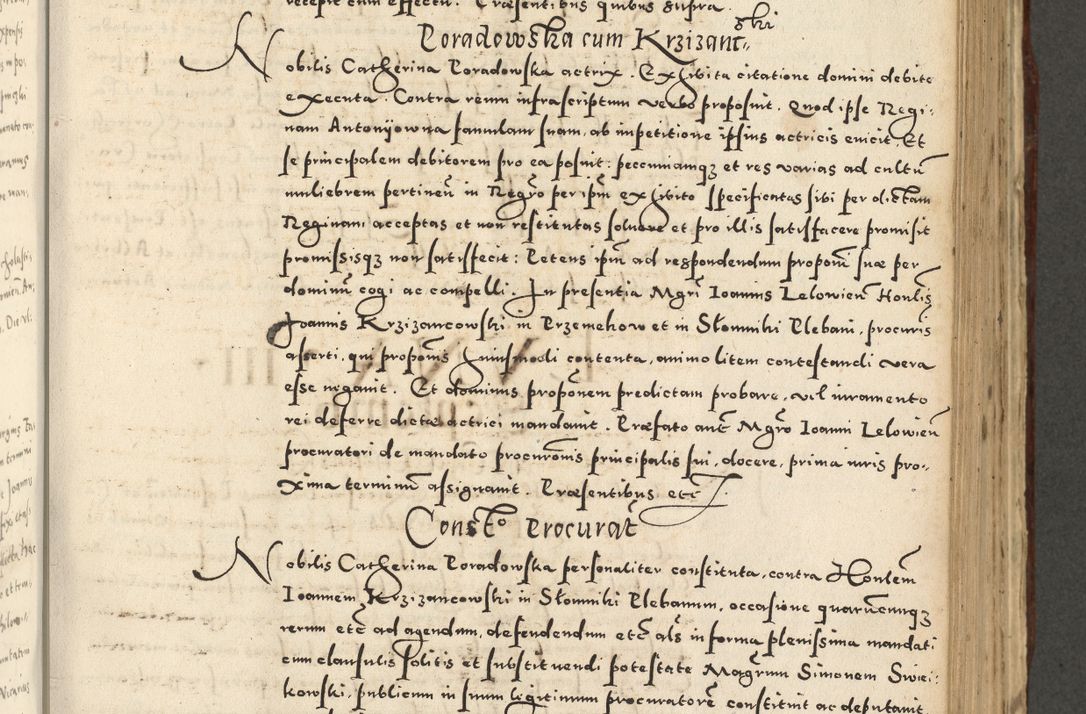 recepit cum effectu. Præsentibus quibus supra.
Poradowska cum Krzizantski
Nobilis Catherina Poradowska actrix. Exhibita citatione domini debite
executa. Contra reum infrascriptum verbo proposuit. Quod ipse Regi:
nam Antonijowna famulam suam, ab impetitione ipsius actricis euicit. Et
se principalem debitorem pro ea posuit: peccuniamqz et res varias ad cultū
muliebrem pertinen̄ in Regr̄o per ipm̄ exhibito specificatas sibi per dictam
Reginam acceptas et non restitutas soluere et pro illis satisfacere promisit
promissisqz non satisfecit: Petens ipm̄ ad respondendum proponī suæ per
dominū cogi ac compelli. In presentia Mgrī Ioannis Lelowień Honlīs
Joannis Krzizancowski in Przemekow et in Słomniki Plebani, procuris
asserti, qui propon̄is huiusmodi contenta, animo litem contestandi vera
esse negauit. Et dominus propōnem predictam probare, vel iuramento
rei deferre dictæ actrici mandauit. Præfato aut̄ Mgr̄o Ioanni Lelowień
procuratori de mandato procurōnis principalis sui, docere, prima iuris pro-
xima terminū assignauit. Præsentibus etc̄
Const̄o Procurat̄
Nobilis Catherina Poradowska personaliter constituta, contra Honlēm
Ioannem Krzizancowski in Słomniki Plebanum, occasione quarūcumqz
rerum etc̄ ad agendum, defendendum etc̄ als̄ in forma plenissima mandati
cum clausulis solitis et substituendi potestate Magrūm Simonem Swiei:
kowski, publicum in suum legitimum procuratorē constituit ac deputauit.